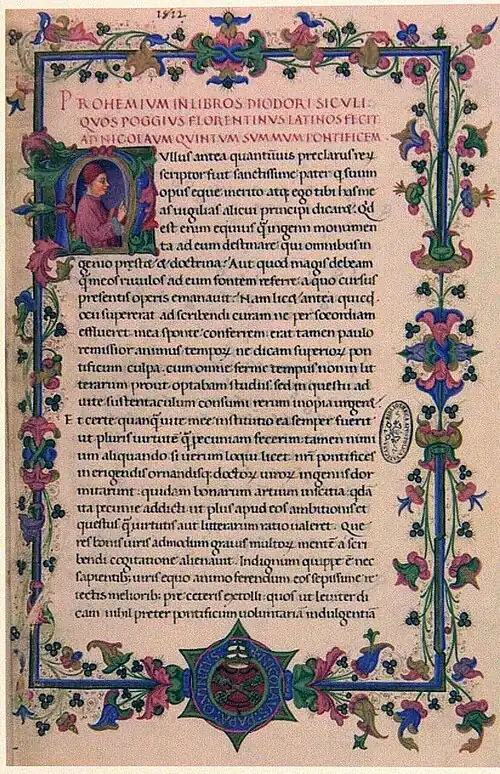 1812
PROHEMIUM IN LIBROS DIODORI SICULI:
QVOS POGGIVS FLORENTINVS LATINOS FECIT
AD NICOLAVM QVINTVM SVMMVM PONTIFICEM
Nullus antea quantũuis preclarus reꝝ
scriptor fuit sanctissime pater q̃ suum
opus eque merito atq; ego tibi has me
as uigilias alicui principi dicarit. Qd
est enim equius q̃ ingenii monumen
ta ad eum destinare qui omnibus in
genio prestet & doctrina? Aut quod magis debeam
q̃ meos riuulos ad eum fontem referre a quo cursus
presentis operis emanauit? Nam licet antea quicqd
ocii supererat ad scribendi curam ne per socordiam
efflueret mea sponte conferrem. erat tamen paulo
remissior animus tempoꝝ ne dicam superioꝝ pon
tificum culpa. cum omne ferme tempus non in lit
terarum prout optabam studiis. sed in questu ad
uite sustentaculum consumi rerum inopia urgeret.
Et certe quanq̃ uite mee institutio ea semper fuerit
ut pluris uirtutẽ q̃ pecuniam fecerim: tamen nimi
um aliquando si uerum loqui licet nr̃i pontifices
in erigendis ornandisq; doctoꝝ uiroꝝ ingeniis dor
mitarunt. quidam bonarum artium inscitia. qdã
ita pecunie addicti ut plus apud eos ambitionis et
questus q̃ uirtutis aut litterarum ratio ualeret. Que
res bonis uiris admodum grauis multoꝝ mentẽ a scri
bendi cogitatione alienauit. Indignum quippe ẽ nec
sapientib; uiris equo animo ferendum eos sepissime re
iectis meliorib; pre ceteris extolli: quos ut leuiter di
cam nihil preter pontificum uoluntariã indulgentiã
NICOLAVS PAPA QVINTVS